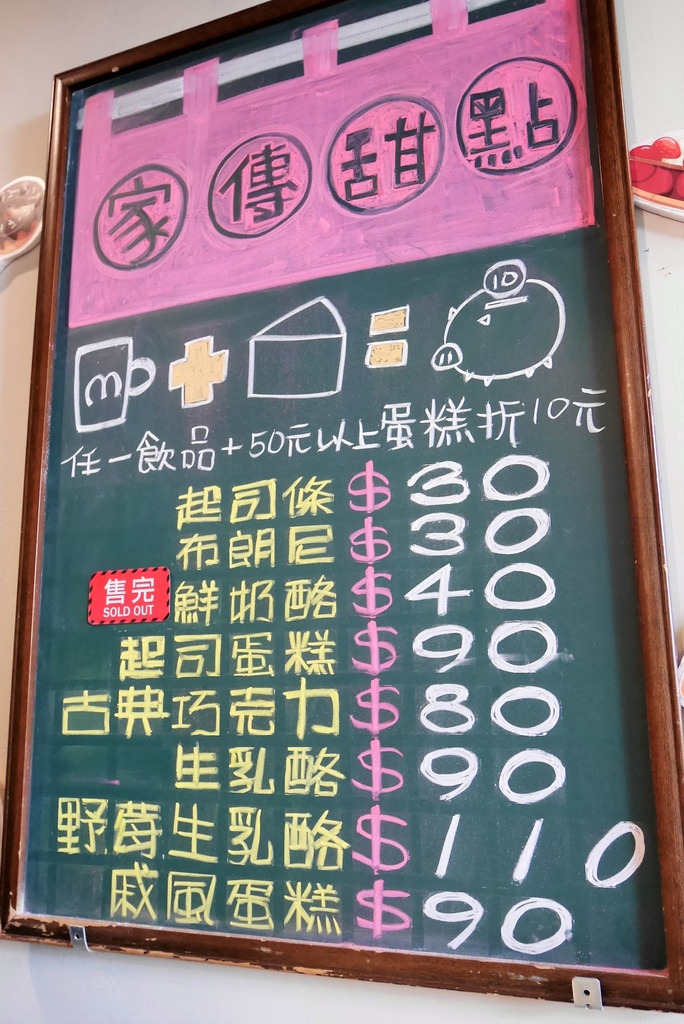 家傳甜點
m
10
任一飲品+50元以上蛋糕折10元
起司條 $30
布朗尼 $30
售完 SOLD OUT 鮮奶酪 $40
起司蛋糕 $90
古典巧克力 $80
生乳酪 $90
野莓生乳酪 $110
戚風蛋糕 $90